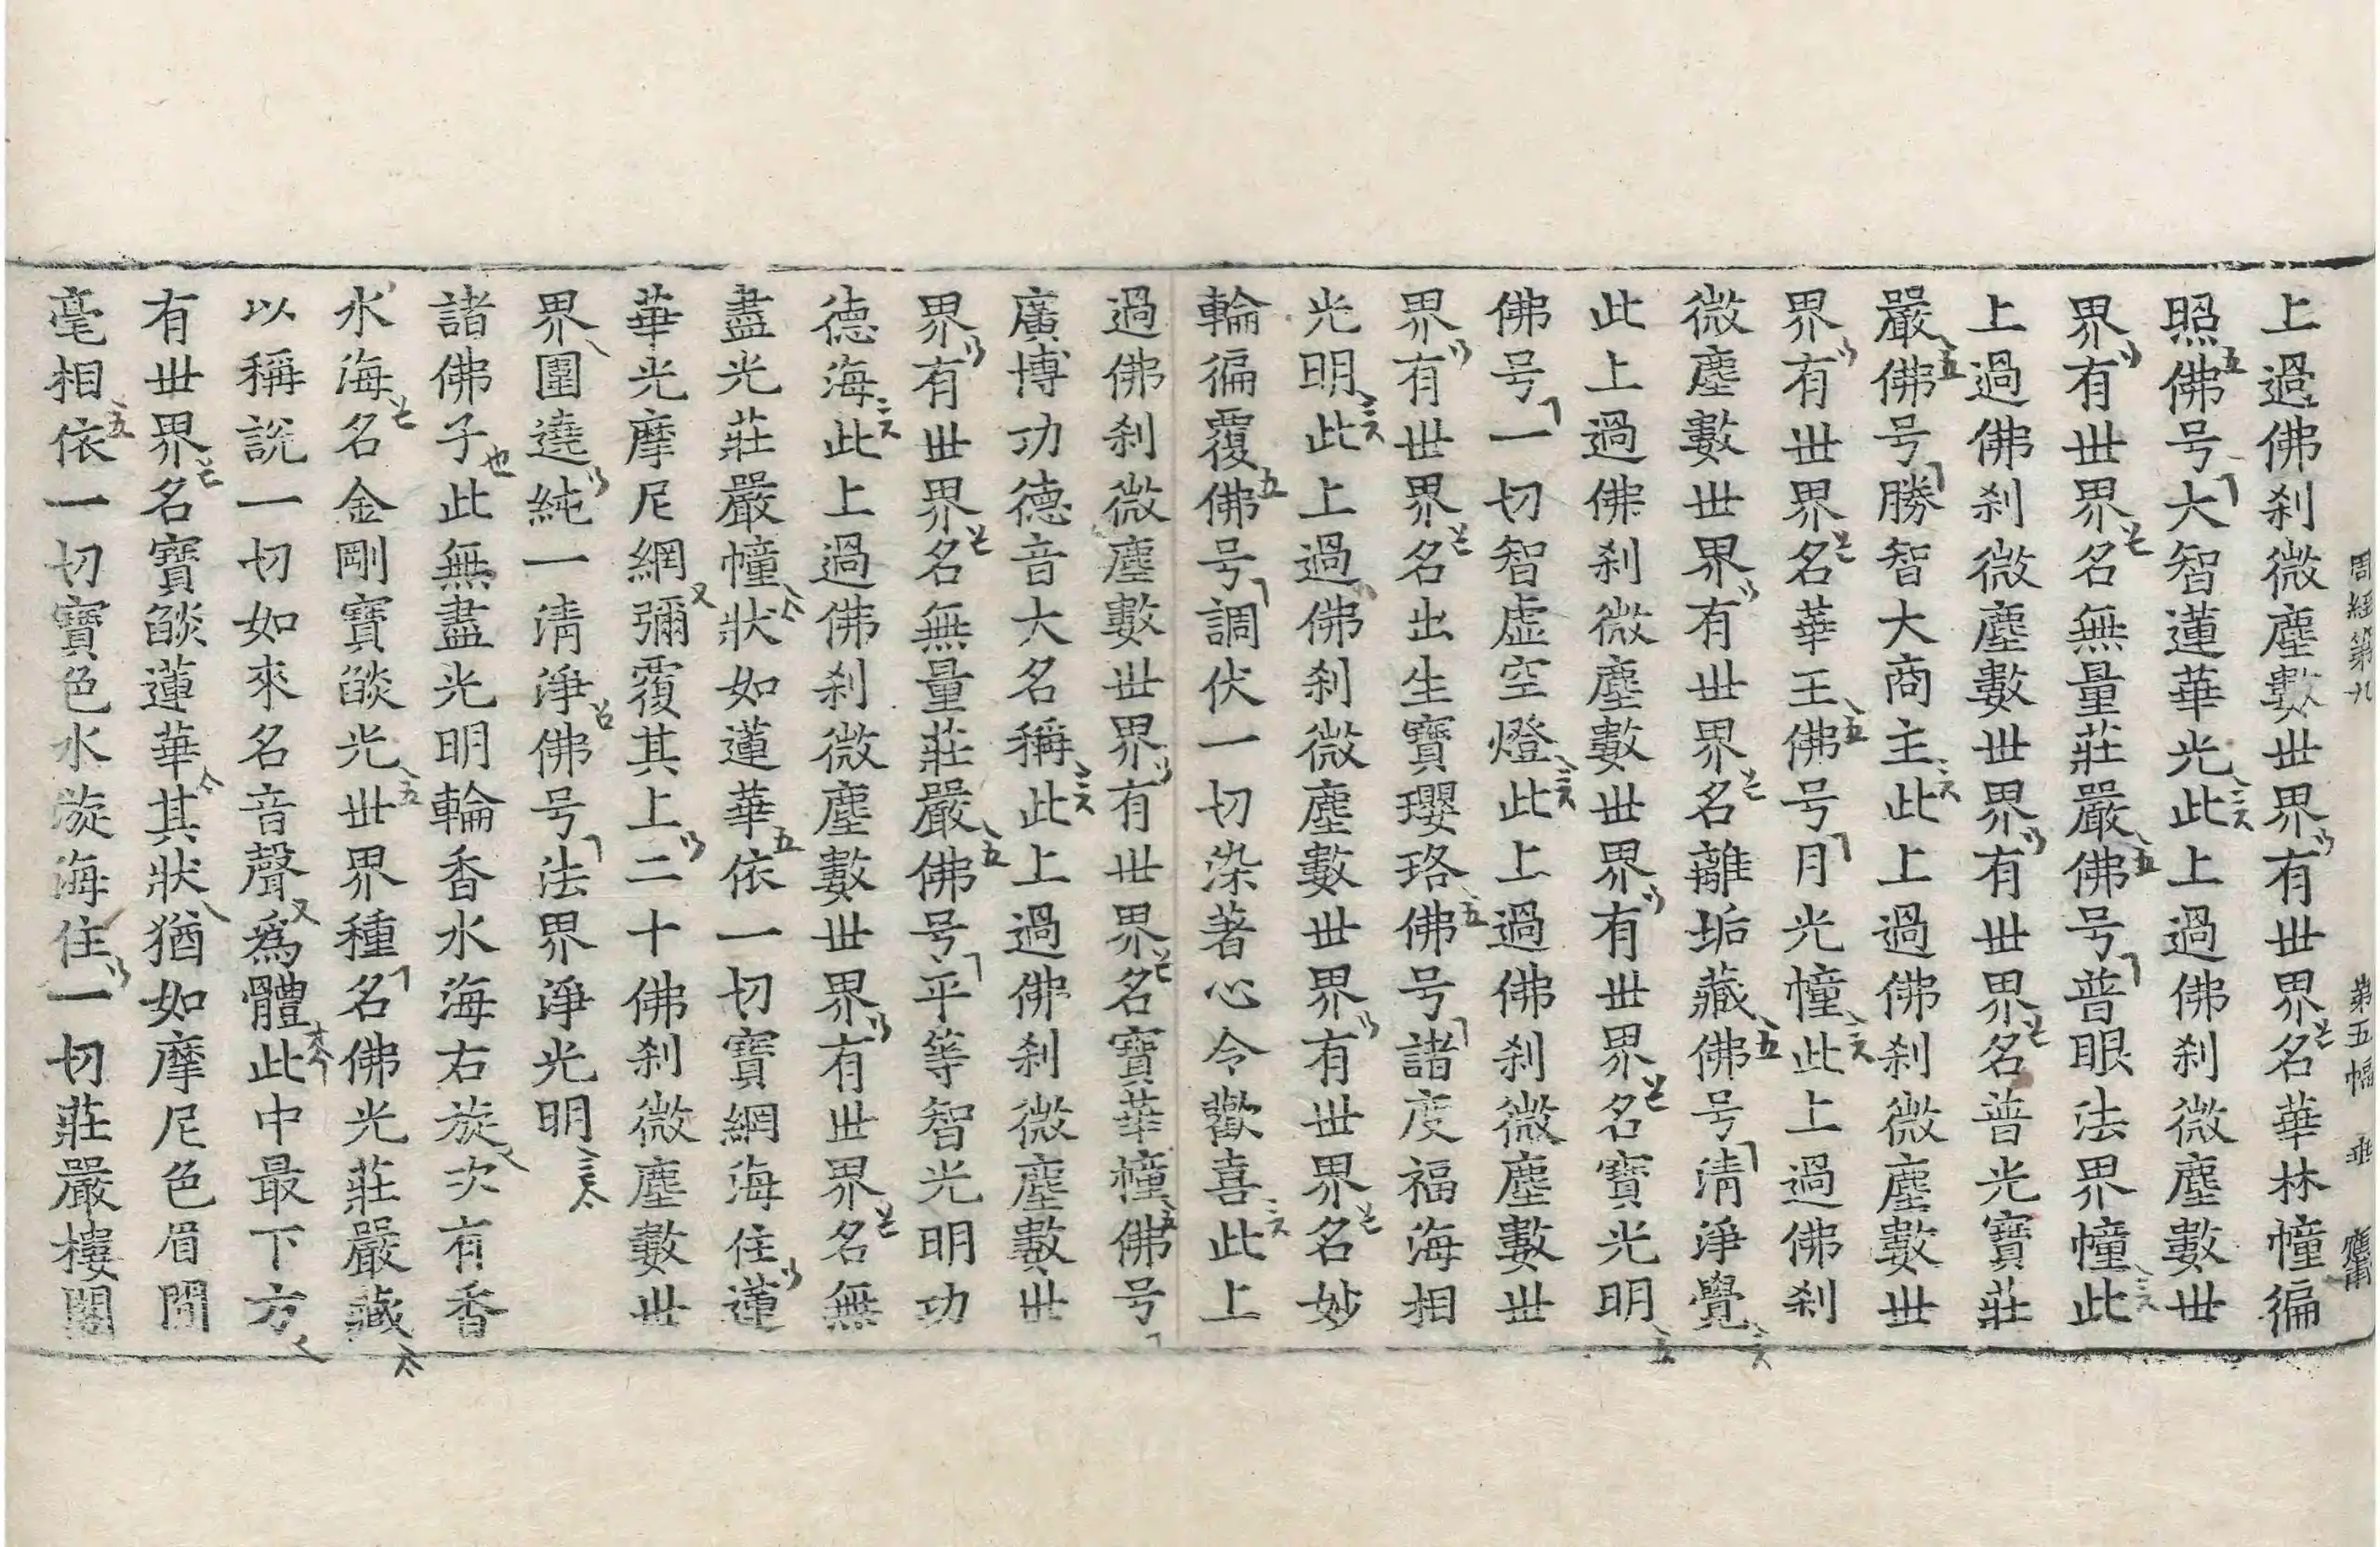 周經第九 第五幅 垂
上過佛刹微塵數世界有世界名華林幢徧
照佛号大智蓮華光此上過佛刹微塵數世
界有世界名無量莊嚴佛号普眼法界幢此
上過佛刹微塵數世界有世界名普光寶莊
嚴佛号勝智大商主此上過佛刹微塵數世
界有世界名華王佛号月光幢此上過佛刹
微塵數世界有世界名離垢藏佛号清淨覺
此上過佛刹微塵數世界有世界名寶光明
佛号一切智虛空燈此上過佛刹微塵數世
界有世界名出生寶瓔珞佛号諸度福海相
光明此上過佛刹微塵數世界有世界名妙
輪徧覆佛号調伏一切染著心令歡喜此上
過佛刹微塵數世界有世界名寶華幢佛号
廣博功德音大名稱此上過佛刹微塵數世
界有世界名無量莊嚴佛号平等智光明功
德海此上過佛刹微塵數世界有世界名無
盡光莊嚴幢狀如蓮華依一切寶網海住蓮
華光摩尼網彌覆其上二十佛刹微塵數世
界圍遶純一清淨佛号法界淨光明
諸佛子此無盡光明輪香水海右旋次有香
水海名金剛寶燄光世界種名佛光莊嚴藏
以稱說一切如來名音聲爲體此中最下方
有世界名寶燄蓮華其狀猶如摩尼色眉間
毫相依一切寶色水漩海住一切莊嚴樓閣